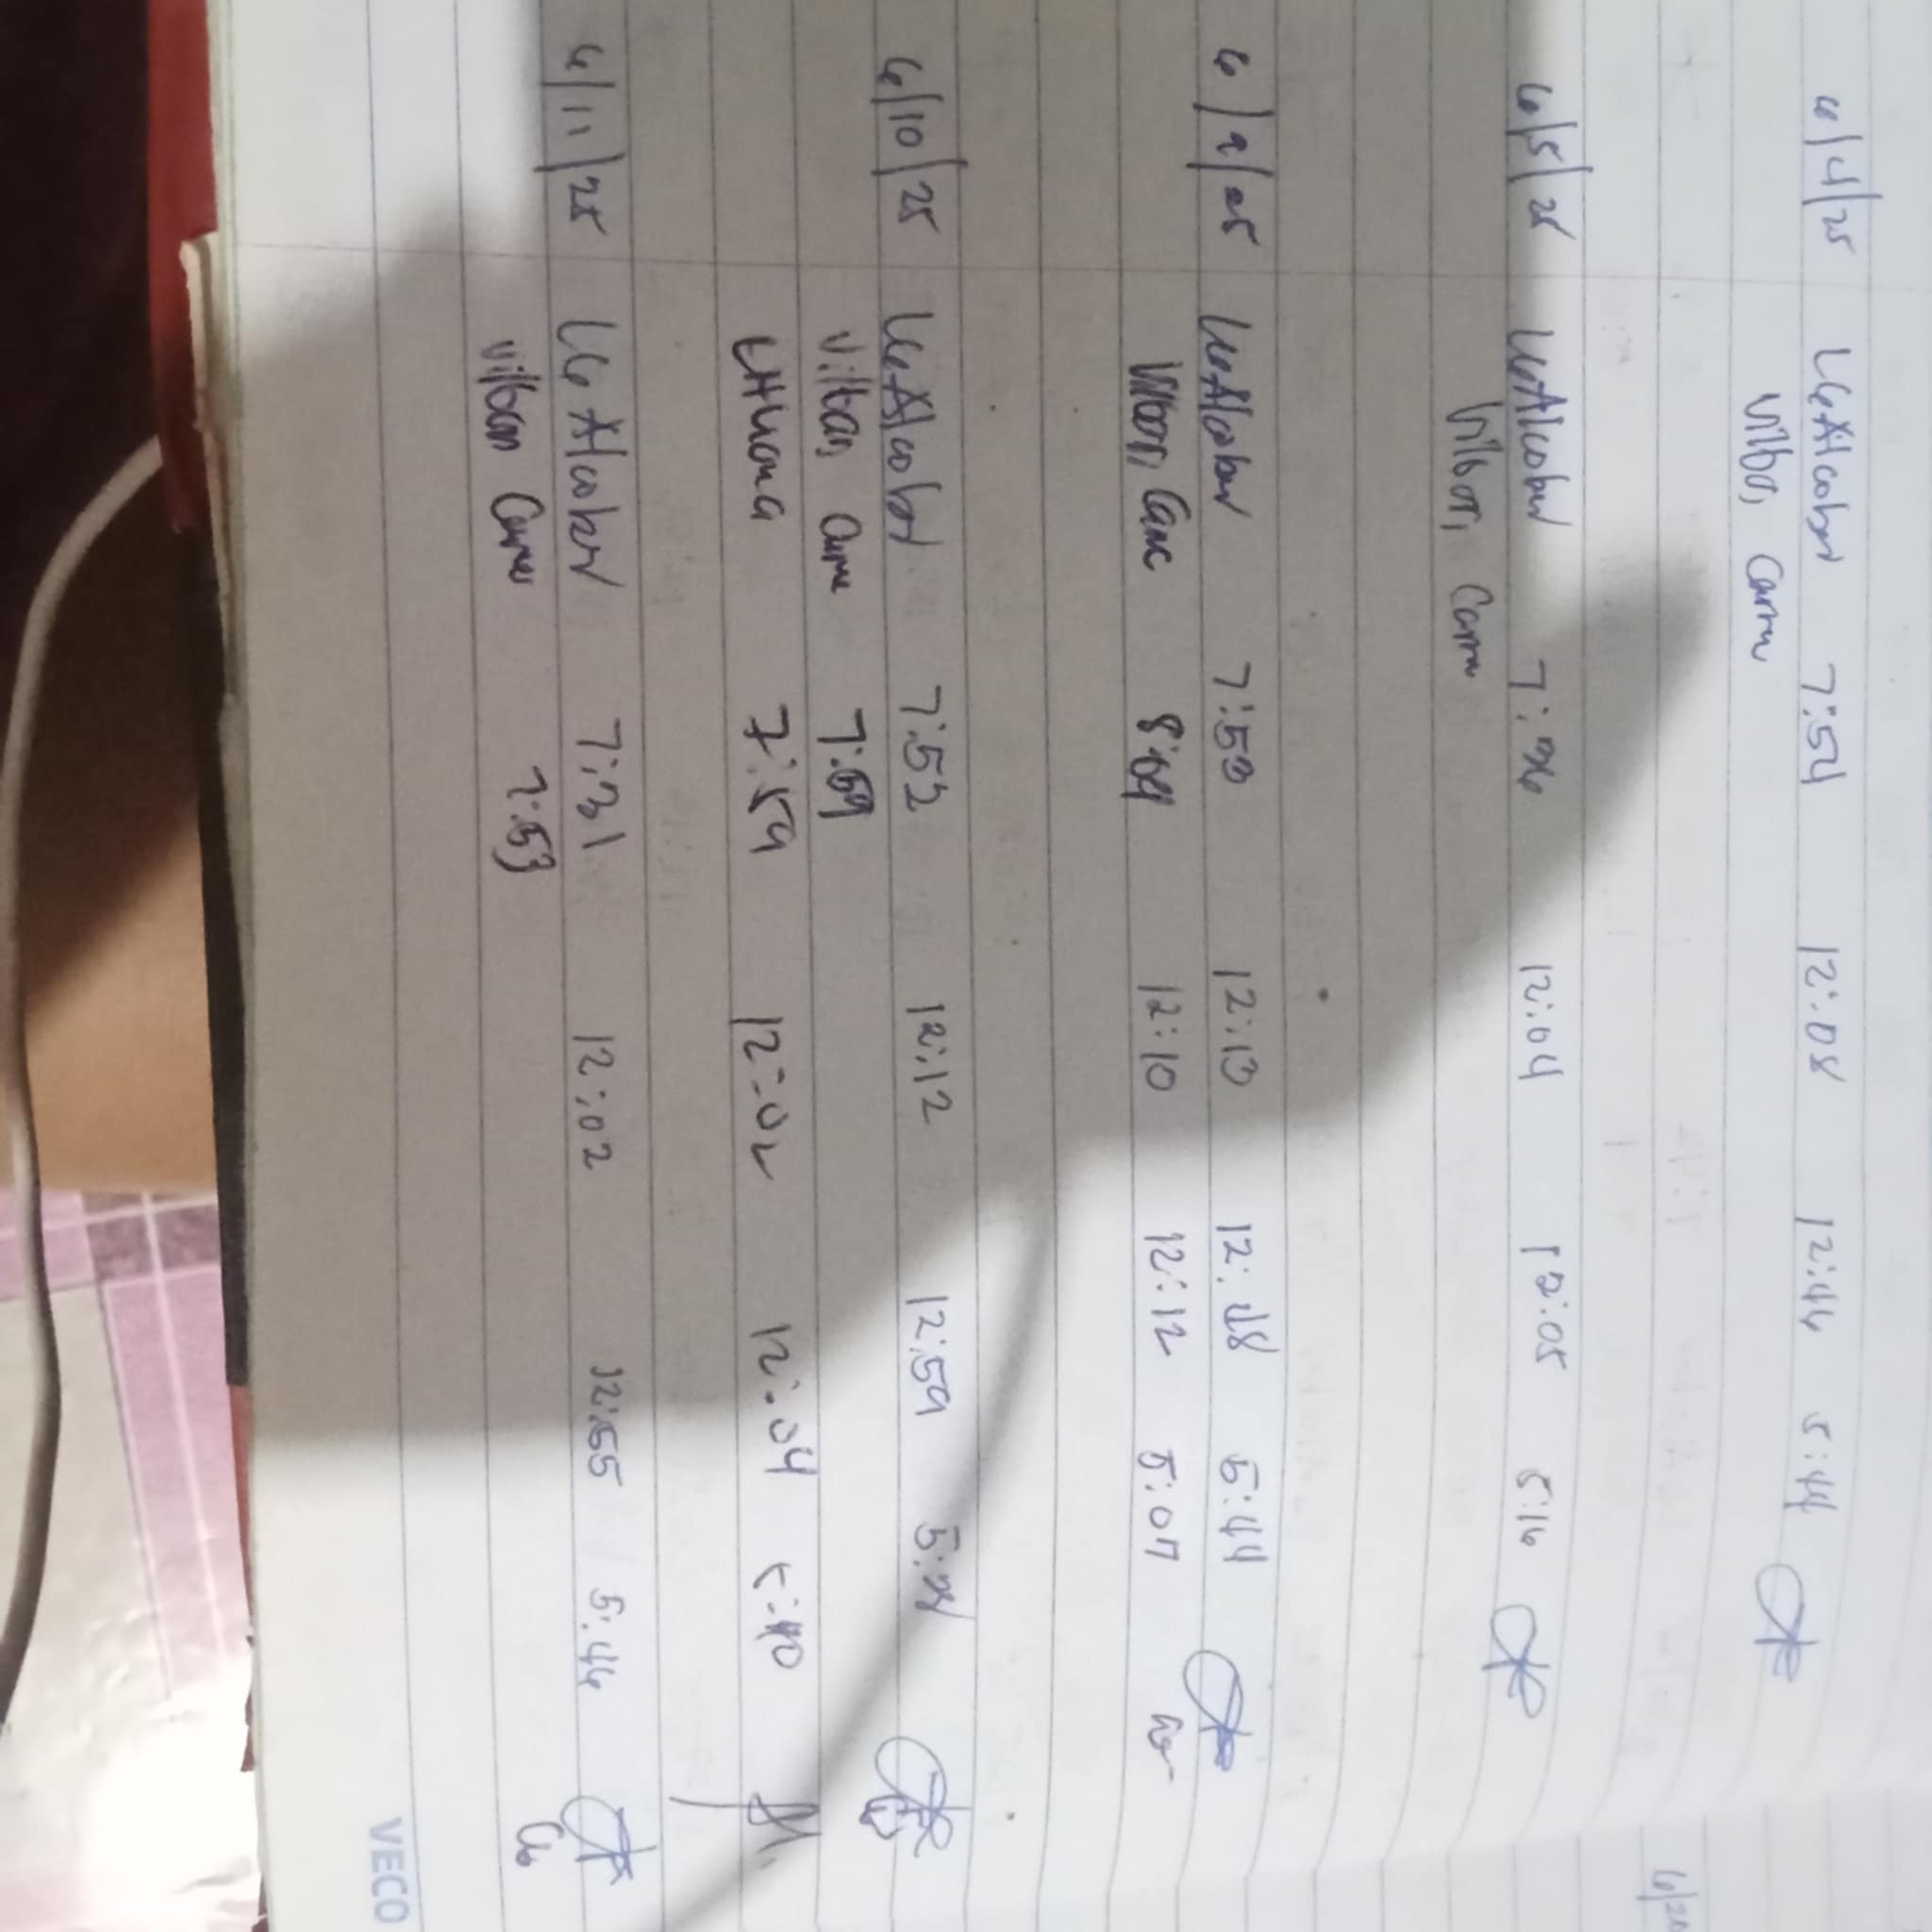 6/4/25 LGAlcober 7:54 12:08 12:46 5:44
Vilbar, Carm
6/5/25 LGAlcober 7:36 12:04 12:05 5:16
Vilbar, Carm
6/9/25 LGAlcober 7:53 12:13 12:58 5:44
Vilbar, Carm 8:04 12:10 12:12 5:07
6/10/25 LGAlcober 7:53 12:12 12:59
Vilbar, Carm 7:59
7:59 12:02 12:04 5:40
6/11/25 LGAlcober 7:31 12:02 12:55 5:46
Vilbar Carm 7:53
VECO